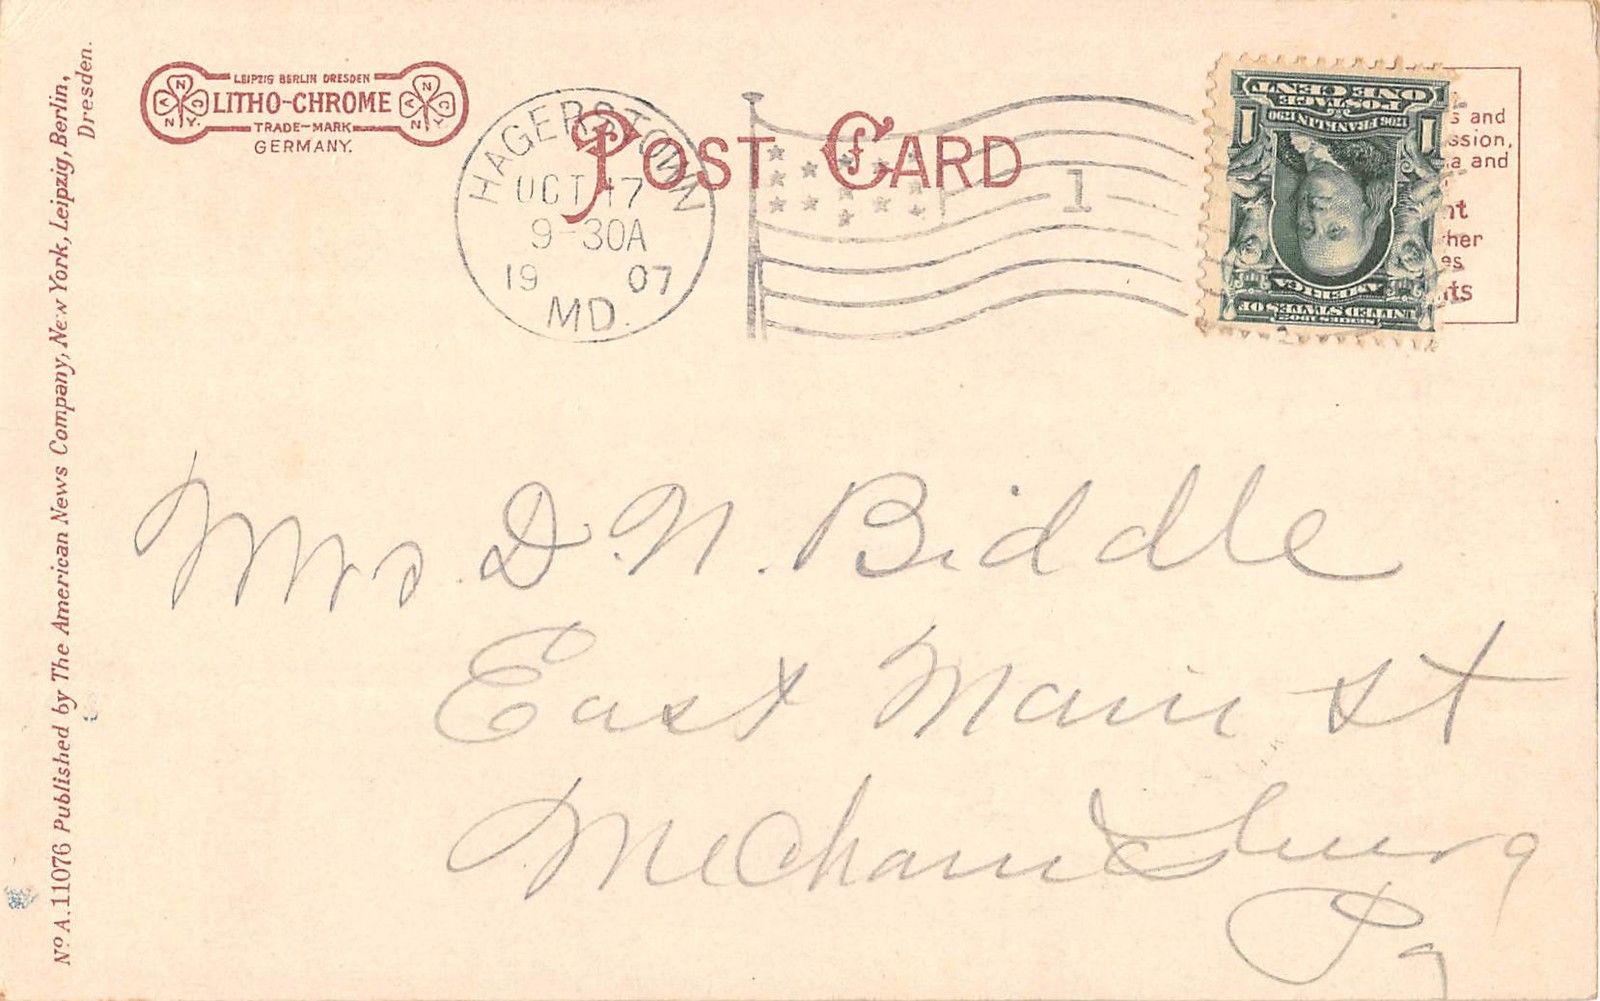 LEIPZIG BERLIN DRESDEN
LITHO-CHROME
TRADE-MARK
GERMANY.
A N C
N.Y.
A N C
N.Y.
POST CARD
HAGERSTOWN
OCT 17
9-30A
1907
MD.
1
ONE CENT
POSTAGE
1706 FRANKLIN 1790
1 1
AMERICA
UNITED STATES OF
SERIES 1902
s and
ssion,
a and
nt
her
es
ts
Mrs. D. N. Biddle
East Main St
Mechanicsburg
Pa
Nº A. 11076 Published by The American News Company, New York, Leipzig, Berlin,
Dresden.